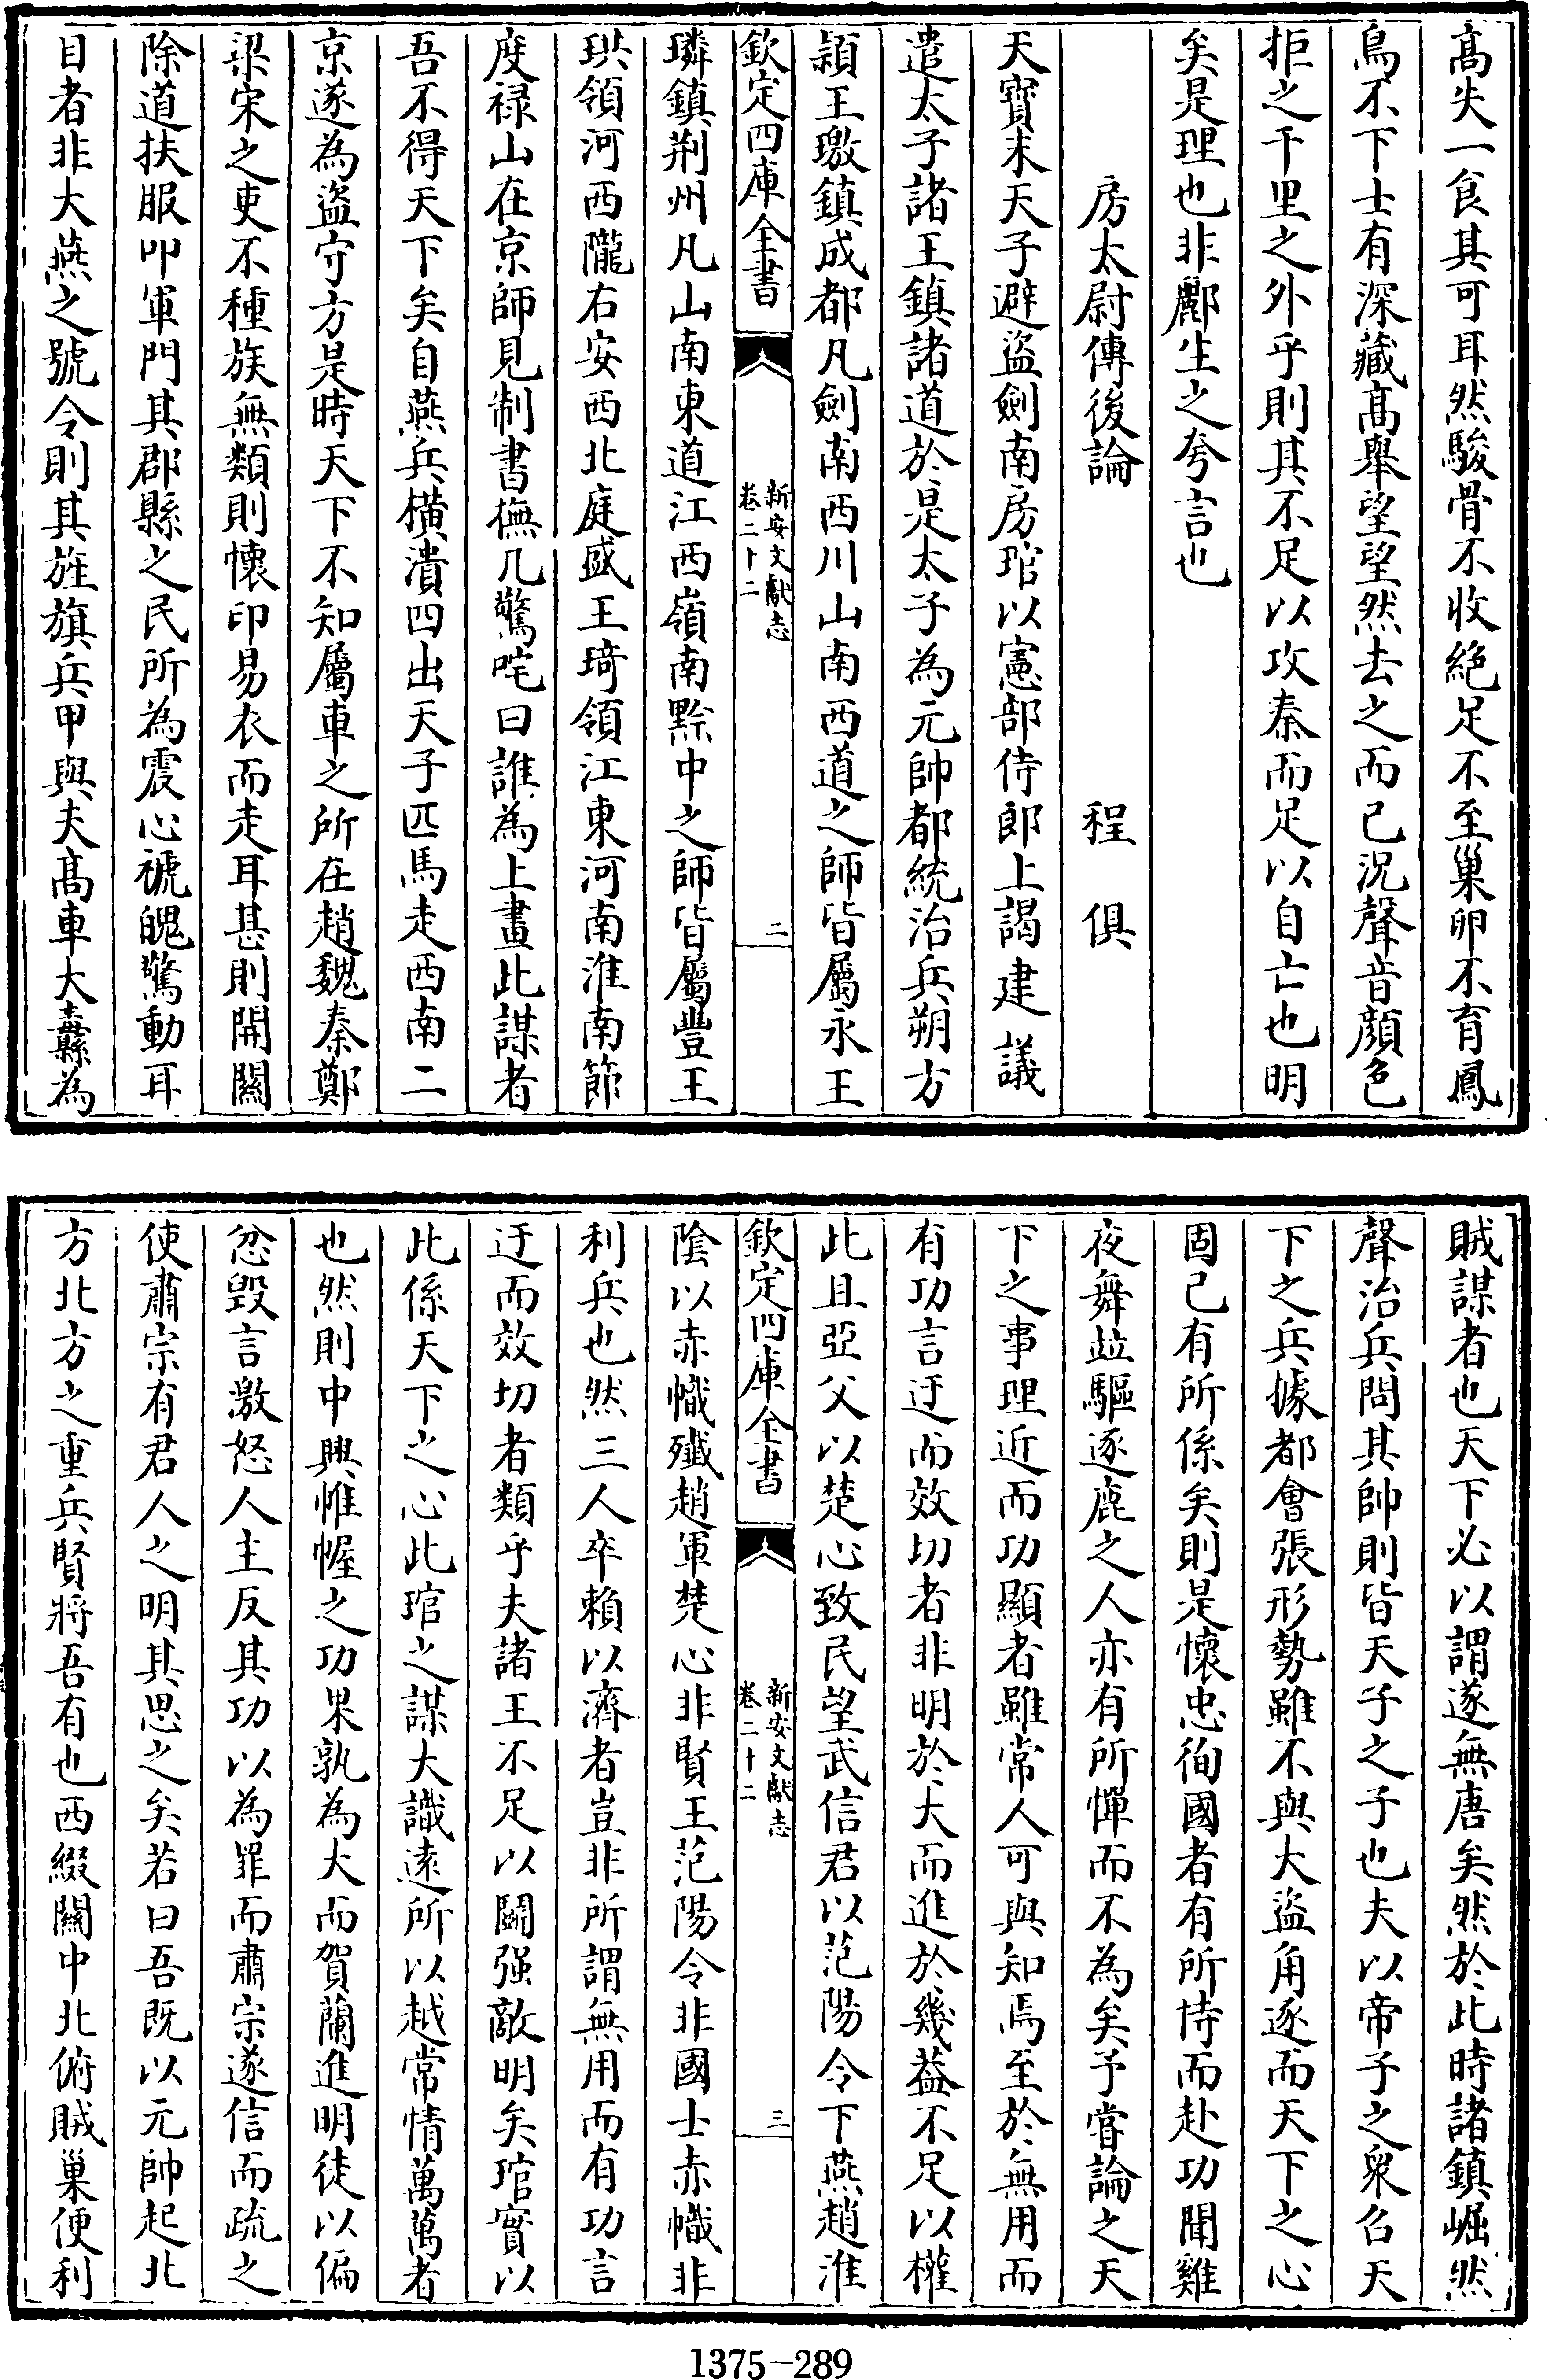 髙失一食其可耳然駿骨不收絶足不至巢卵不育鳳
鳥不下士有深藏髙舉望望然去之而已況聲音顔色
拒之千里之外乎則其不足以攻秦而足以自亡也明
矣是理也非酈生之夸言也
房太尉傳後論 程俱
天寳末天子避盜劍南房琯以憲部侍郎上謁建議
遣太子諸王鎮諸道於是太子為元帥都統治兵朔方
潁王璬鎮成都凡劍南西川山南西道之師皆屬永王
欽定四庫全書
新安文獻志
卷二十二
二
璘鎮荆州凡山南東道江西嶺南黔中之師皆屬豐王
珙領河西隴右安西北庭盛王琦領江東河南淮南節
度禄山在京師見制書撫几驚咤曰誰為上畫此謀者
吾不得天下矣自燕兵横潰四出天子匹馬走西南二
京遂為盜守方是時天下不知屬車之所在趙魏秦鄭
梁宋之吏不種族無類則懷印易衣而走耳甚則開關
除道扶服叩軍門其郡縣之民所為震心褫魄驚動耳
目者非大燕之號令則其旌旗兵甲與夫髙車大纛為
賊謀者也天下必以謂遂無唐矣然於此時諸鎮崛然
聲治兵問其帥則皆天子之子也夫以帝子之衆召天
下之兵據都會張形勢雖不與大盜角逐而天下之心
固已有所係矣則是懷忠徇國者有所恃而赴功聞雞
夜舞竝驅逐鹿之人亦有所憚而不為矣予嘗論之天
下之事理近而功顯者雖常人可與知焉至於無用而
有功言迂而效切者非明於大而進於幾葢不足以權
此且亞父以楚心致民望武信君以范陽令下燕趙淮
欽定四庫全書
新安文獻志
卷二十二
三
陰以赤幟殲趙軍楚心非賢王范陽令非國士赤幟非
利兵也然三人卒賴以濟者豈非所謂無用而有功言
迂而效切者類乎夫諸王不足以鬭强敵明矣琯實以
此係天下之心此琯之謀大識逺所以越常情萬萬者
也然則中興帷幄之功果孰為大而賀蘭進明徒以偏
忿毁言激怒人主反其功以為罪而肅宗遂信而疏之
使肅宗有君人之明其思之矣若曰吾既以元帥起北
方北方之重兵賢將吾有也西綴關中北俯賊巢便利
1375-289